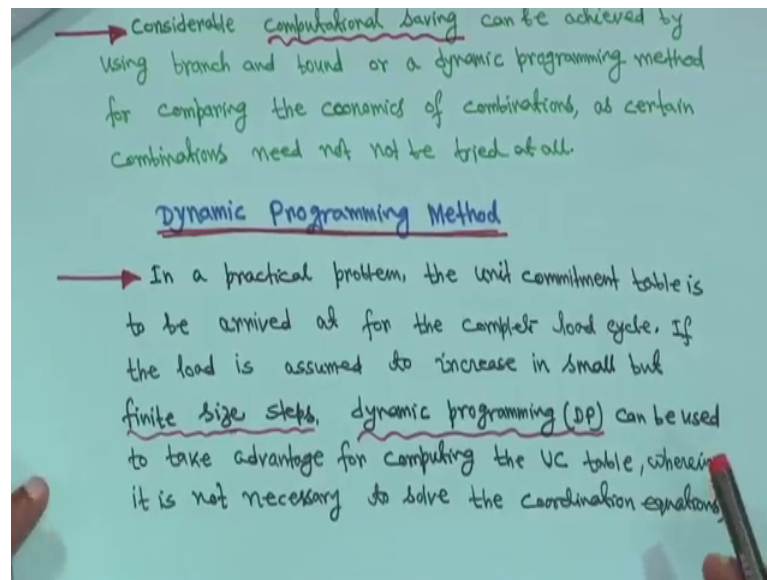 Considerable computational saving can be achieved by
using branch and bound or a dynamic programming method
for comparing the economics of combinations, as certain
combinations need not not be tried at all.
Dynamic Programming Method
In a practical problem, the unit commitment table is
to be arrived at for the complete load cycle. If
the load is assumed to increase in small but
finite size steps, dynamic programming (DP) can be used
to take advantage for computing the UC table, wherein
it is not necessary to solve the coordination equations,